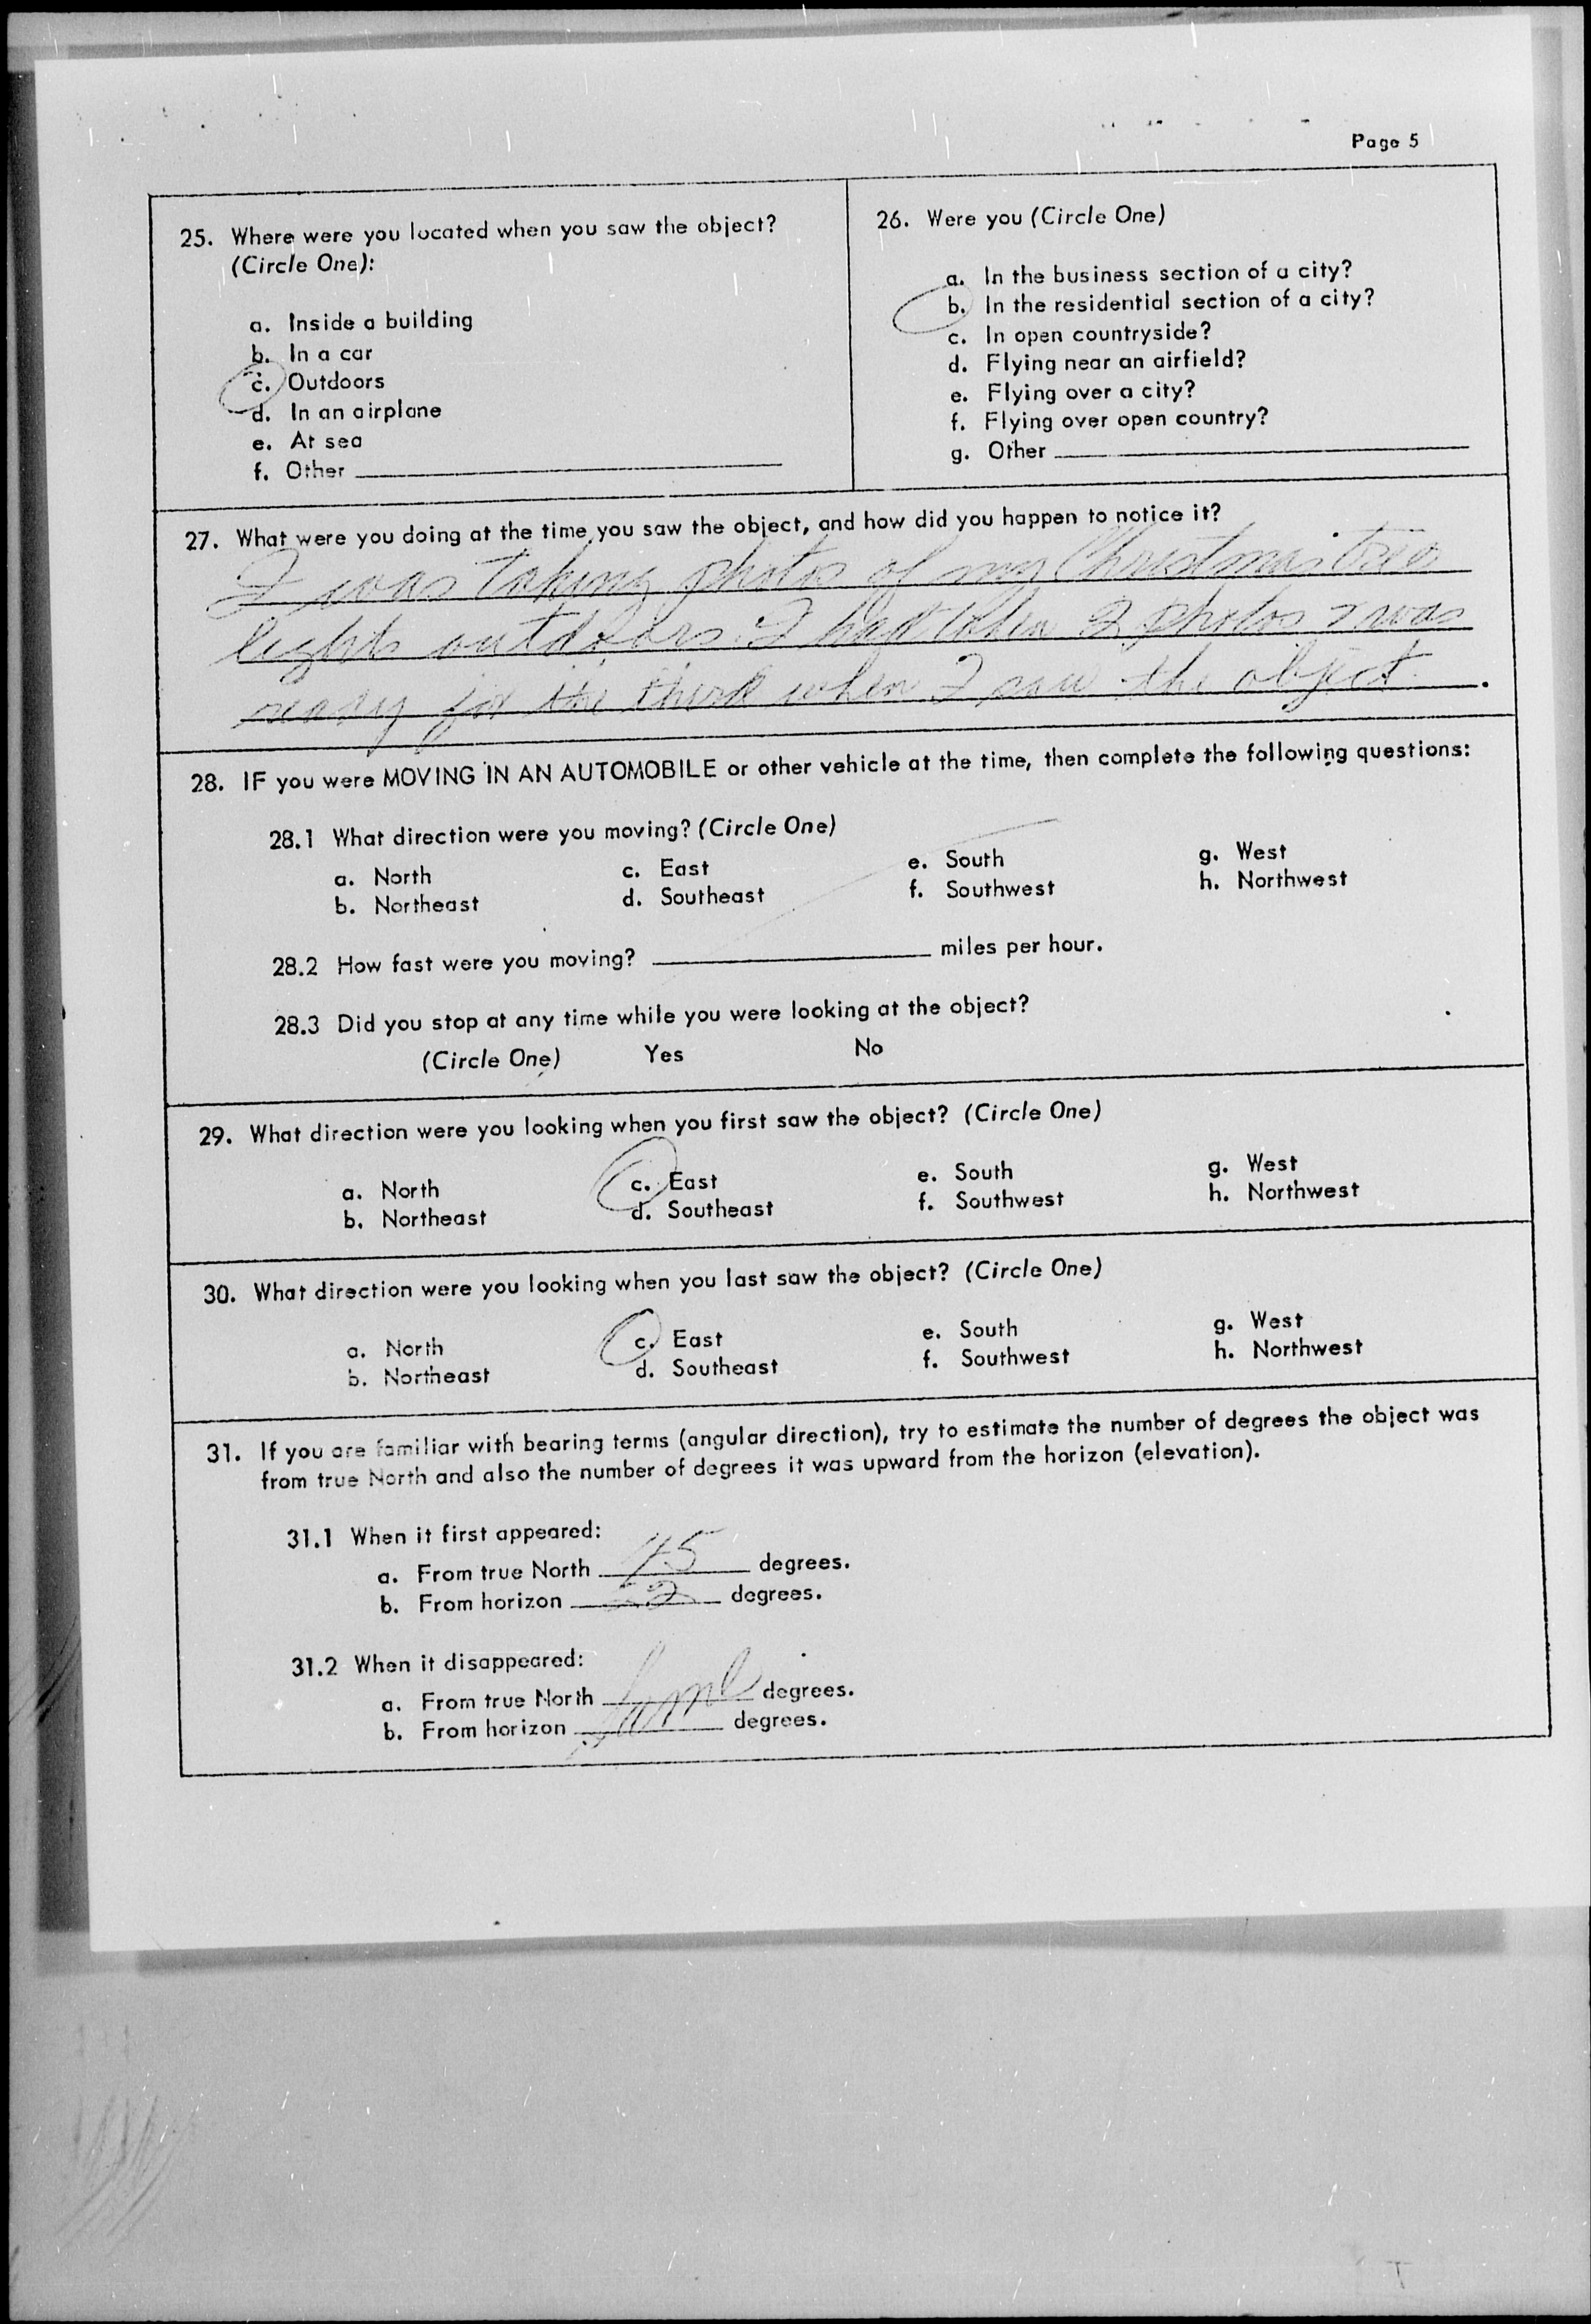 Page 5
25. Where were you located when you saw the object?
(Circle One):
a. Inside a building
b. In a car
c. Outdoors
d. In an airplane
e. At sea
f. Other
26. Were you (Circle One)
a. In the business section of a city?
b. In the residential section of a city?
c. In open countryside?
d. Flying near an airfield?
e. Flying over a city?
f. Flying over open country?
g. Other
27. What were you doing at the time you saw the object, and how did you happen to notice it?
I was taking photos of my Christmas tree
lights outdoors. I had taken 2 photos & was
ready for the third when I saw the object.
28. IF you were MOVING IN AN AUTOMOBILE or other vehicle at the time, then complete the following questions:
28.1 What direction were you moving? (Circle One)
a. North c. East e. South g. West
b. Northeast d. Southeast f. Southwest h. Northwest
28.2 How fast were you moving? miles per hour.
28.3 Did you stop at any time while you were looking at the object?
(Circle One) Yes No
29. What direction were you looking when you first saw the object? (Circle One)
a. North c. East e. South g. West
b. Northeast d. Southeast f. Southwest h. Northwest
30. What direction were you looking when you last saw the object? (Circle One)
a. North c. East e. South g. West
b. Northeast d. Southeast f. Southwest h. Northwest
31. If you are familiar with bearing terms (angular direction), try to estimate the number of degrees the object was
from true North and also the number of degrees it was upward from the horizon (elevation).
31.1 When it first appeared:
a. From true North degrees.
b. From horizon degrees.
31.2 When it disappeared:
a. From true North same degrees.
b. From horizon degrees.